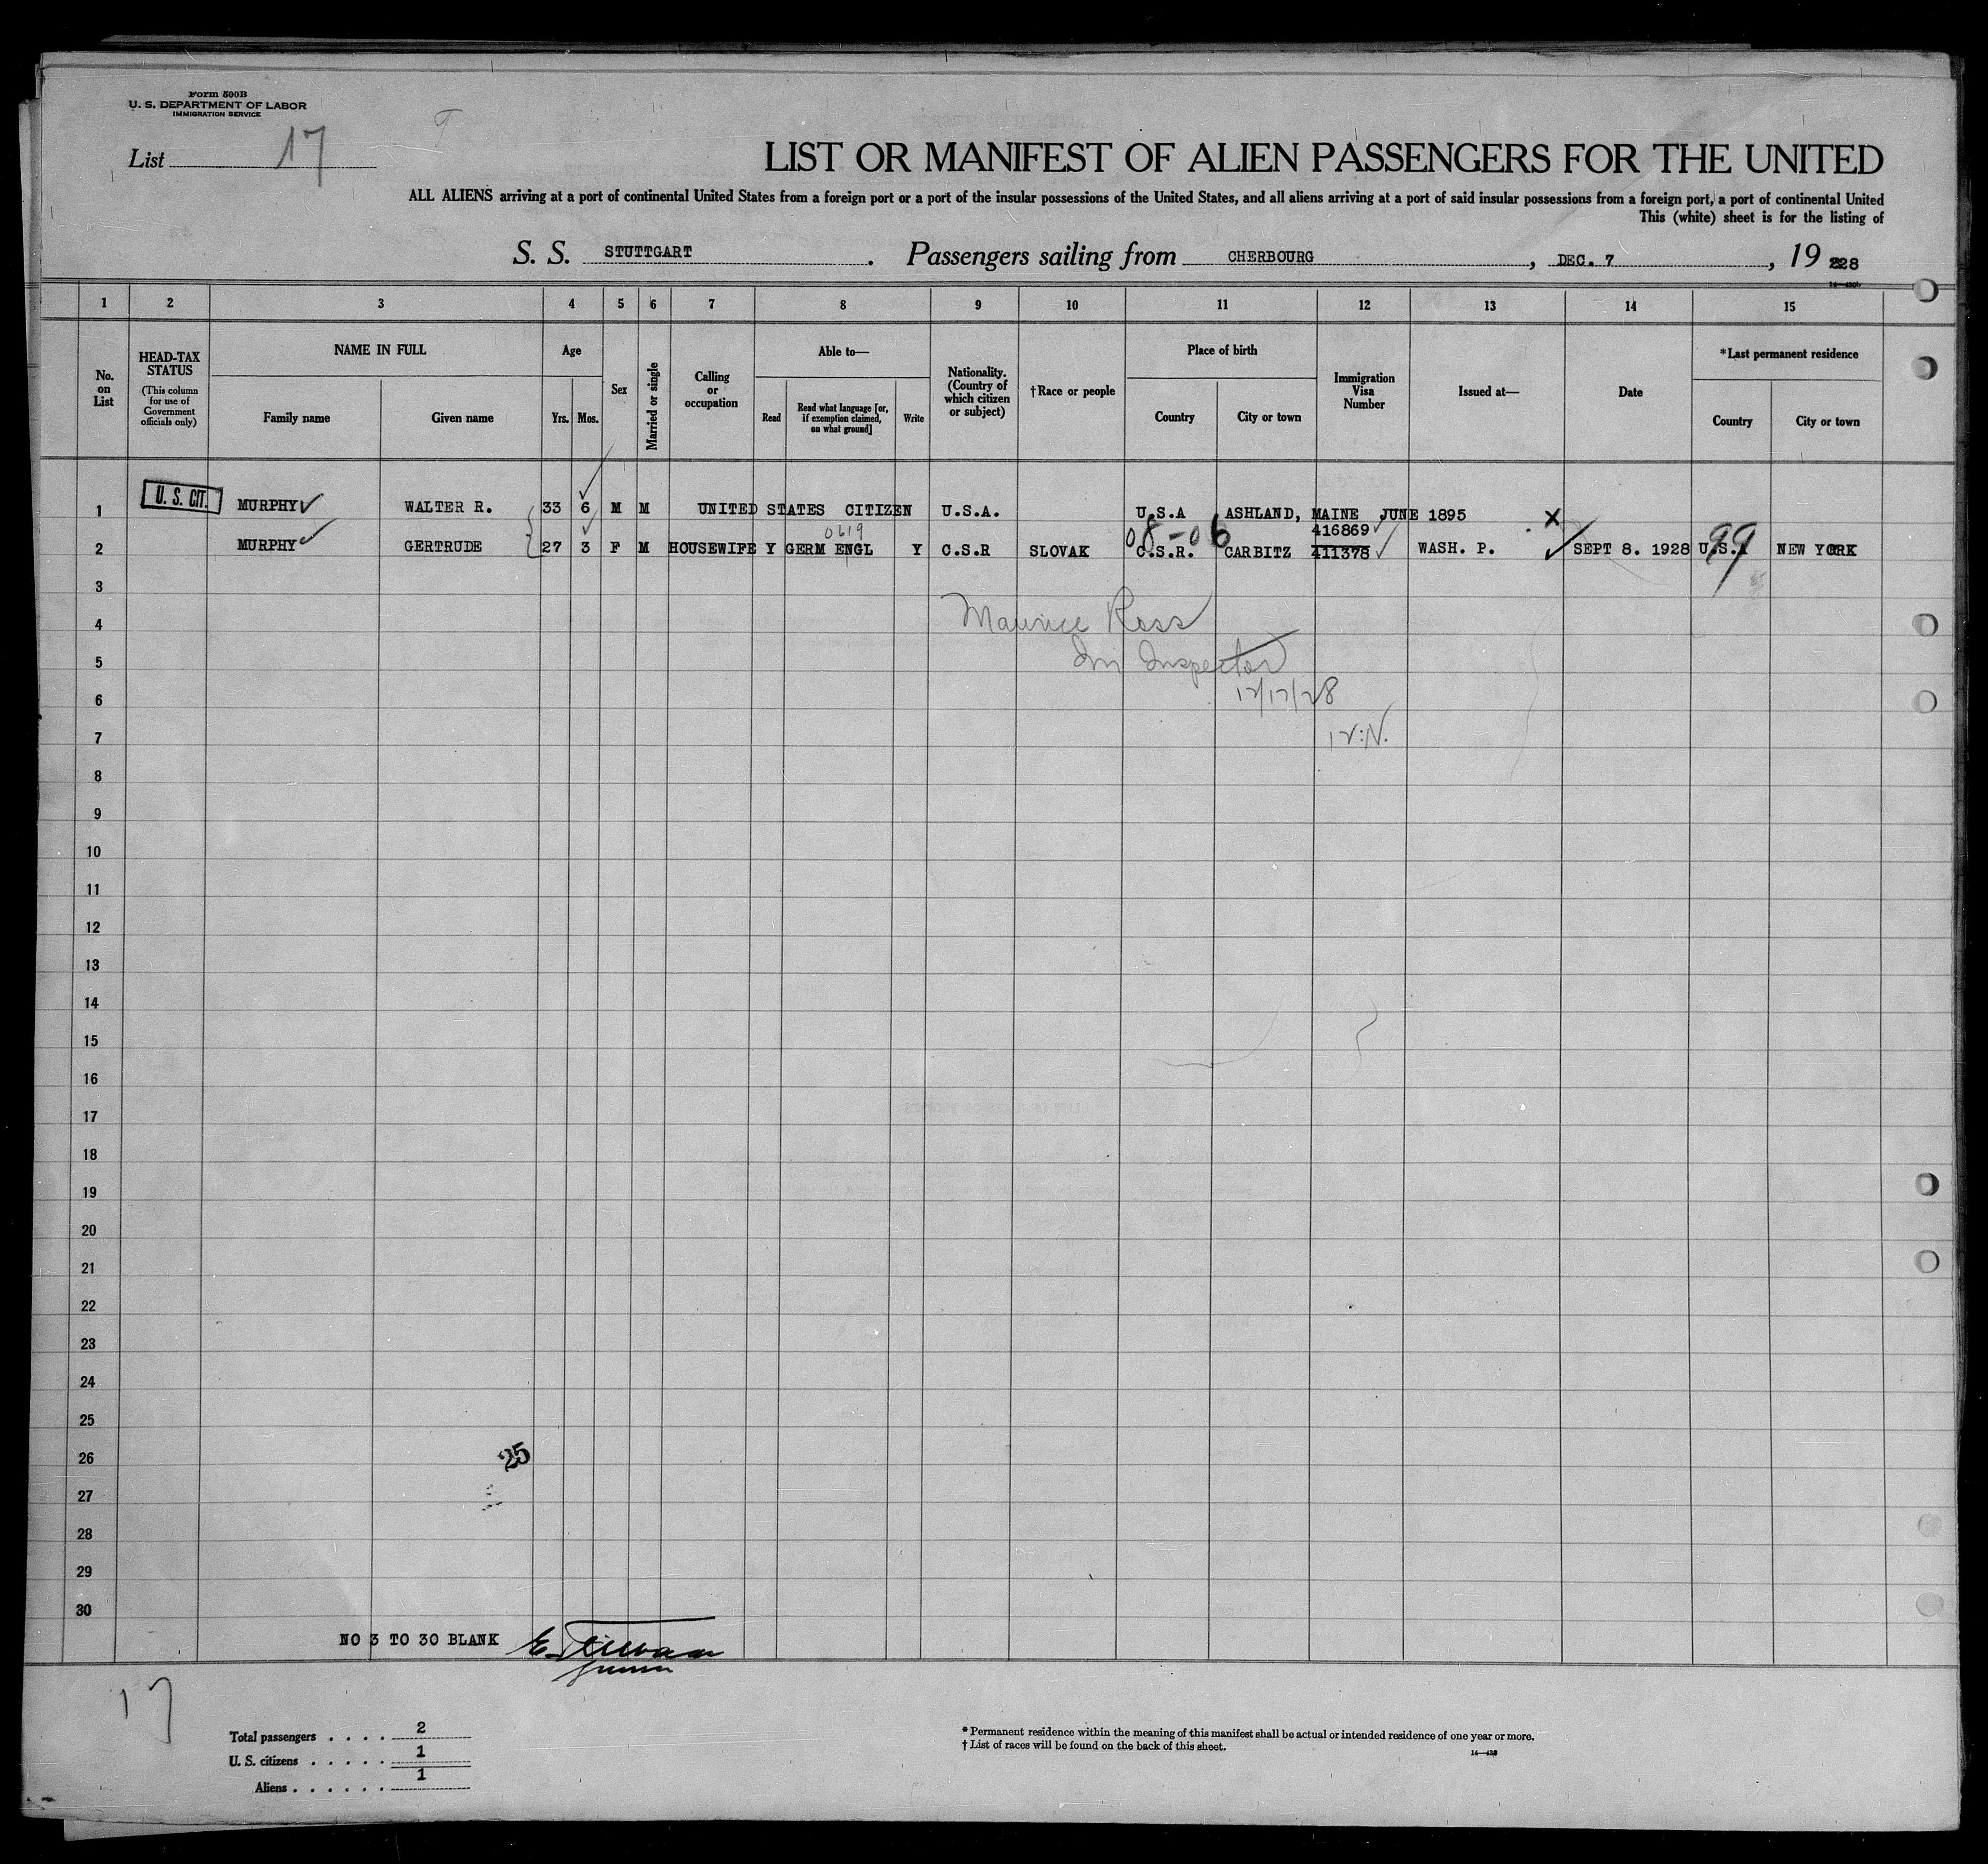 Form 500B
U. S. DEPARTMENT OF LABOR
IMMIGRATION SERVICE
List 17
LIST OR MANIFEST OF ALIEN PASSENGERS FOR THE UNITED
ALL ALIENS arriving at a port of continental United States from a foreign port or a port of the insular possessions of the United States, and all aliens arriving at a port of said insular possessions from a foreign port, a port of continental United
This (white) sheet is for the listing of
S. S. STUTTGART. Passengers sailing from CHERBOURG, DEC. 7, 19 28
1 2 3 4 5 6 7 8 9 10 11 12 13 14 15
No. on List
HEAD-TAX STATUS
(This column for use of Government officials only)
NAME IN FULL
Family name
Given name
Age
Yrs. Mos.
Sex
Married or single
Calling or occupation
Able to—
Read
Read what language [or, if exemption claimed, on what ground]
Write
Nationality. (Country of which citizen or subject)
†Race or people
Place of birth
Country
City or town
Immigration Visa Number
Issued at—
Date
*Last permanent residence
Country
City or town
1 U. S. CIT. MURPHY WALTER R. 33 6 M M UNITED STATES CITIZEN U.S.A. U.S.A ASHLAND, MAINE JUNE 1895 X
0619 08-06 416869 99
2 MURPHY GERTRUDE 27 3 F M HOUSEWIFE Y GERM ENGL Y C.S.R SLOVAK C.S.R. CARBITZ 411378 WASH. P. SEPT 8. 1928 U.S.A NEW YORK
3
4 Maurice Ross
5 Im Inspector
6 12/17/28
7 12:N.
8
9
10
11
12
13
14
15
16
17
18
19
20
21
22
23
24
25
26 25
27
28
29
30
NO 3 TO 30 BLANK
17
Total passengers . . . . 2
U. S. citizens . . . . . 1
Aliens . . . . . . 1
*Permanent residence within the meaning of this manifest shall be actual or intended residence of one year or more.
†List of races will be found on the back of this sheet.